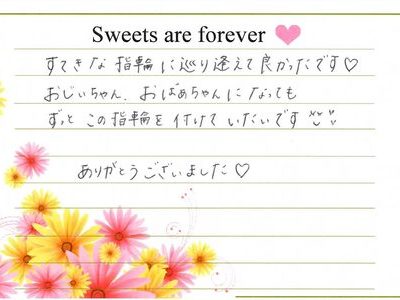 Sweets are forever
すてきな指輪に巡り逢えて良かったです♡
おじいちゃん、おばあちゃんになっても
ずっとこの指輪を付けていたいです
ありがとうございました♡